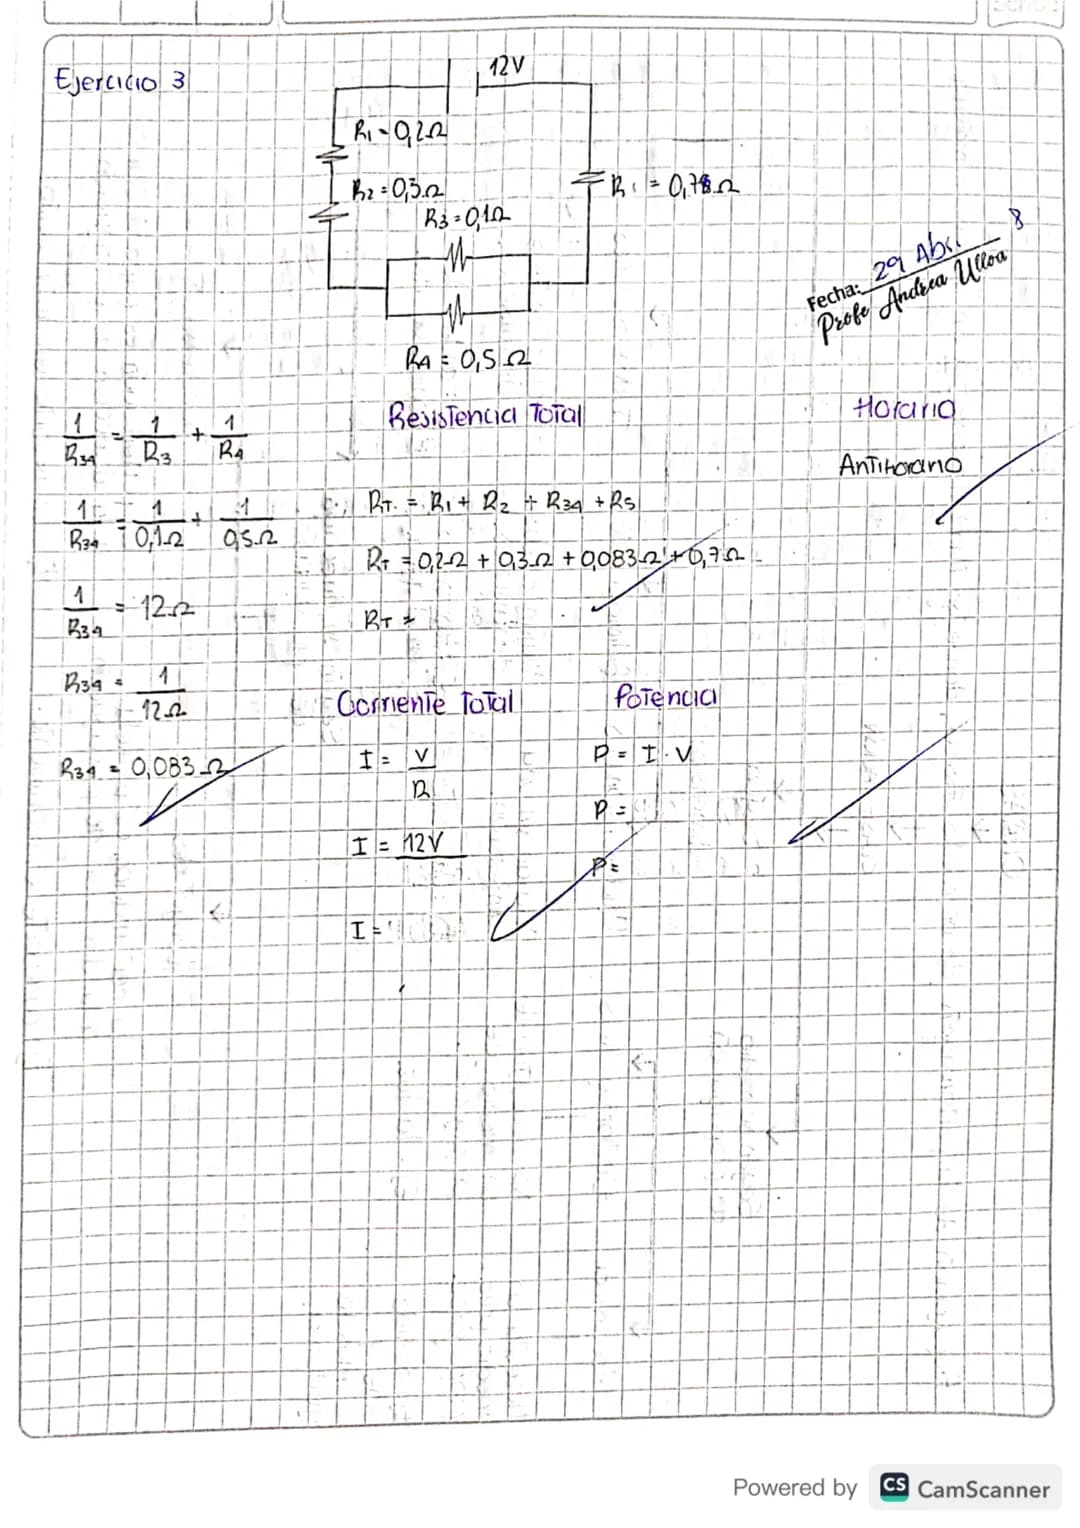 Ejercicio 3
12V
R1 = 0,2Ω
R2 = 0,3Ω
R3 = 0,1Ω
= 0,78Ω
R4 = 0,5Ω
8
Fecha: 29 Abr.
Profe Andrea Ulloa
1/R34 = 1/R3 + 1/R4
1/R34 = 1/0,1Ω + 1/0,5Ω
1/R34 = 12Ω
R34 = 1/12Ω
R34 = 0,083Ω
Resistencia Total
RT. = R1 + R2 + R34 + R5
RT = 0,2Ω + 0,3Ω + 0,083Ω + 0,7Ω
RT =
Horario
Antihorario
Corriente Total
I = V/R
I = 12V
I =
Potencia
P = I . V
P =
P =
Powered by CS CamScanner